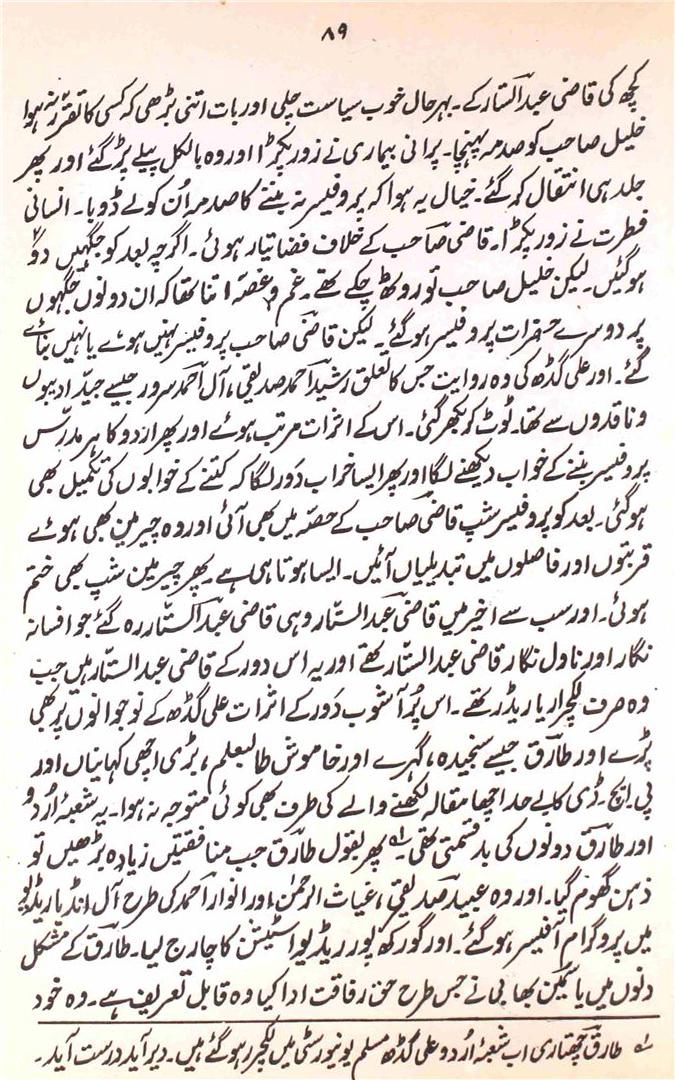 ۸۹
کچھ کی قاضی عبدالستار کے۔ بہرحال خوب سیاست چلی اور بات اتنی بڑھی کہ کسی کا تقرر نہ ہوا
خلیل صاحب کو صدمہ پہنچا۔ پرانی بیماری نے زور پکڑا اور وہ بالکل پیلے پڑ گئے اور پھر
جلد ہی انتقال کر گئے۔ خیال یہ ہوا کہ پروفیسر نہ بننے کا صدمہ اُن کو لے ڈوبا۔ انسانی
فطرت نے زور پکڑا۔ قاضی صاحب کے خلاف فضا تیار ہوئی۔ اگرچہ بعد کو جگہیں دو
ہو گئیں۔ لیکن خلیل صاحب تو روٹھ چکے تھے۔ غم و غصہ اتنا تھا کہ ان دونوں جگہوں
پر دوسرے حضرات پروفیسر ہو گئے۔ لیکن قاضی صاحب پروفیسر نہیں ہوئے یا نہیں بنائے
گئے۔ اور علی گڈھ کی وہ روایت جس کا تعلق رشید احمد صدیقی، آل احمد سرور جیسے جیّد ادیبوں
و ناقدوں سے تھا۔ ٹوٹ کر بکھر گئی۔ اس کے اثرات مرتب ہوئے اور پھر اردو کا ہر مدرّس
پروفیسر بننے کے خواب دیکھنے لگا اور پھر ایسا خراب دَور لگا کہ کتنے کے خوابوں کی تکمیل بھی
ہو گئی۔ بعد کو پروفیسر شپ قاضی صاحب کے حصہ میں بھی آئی اور وہ چیرمین بھی ہوئے
قربتوں اور فاصلوں میں تبدیلیاں آئیں۔ ایسا ہوتا ہی ہے۔ پھر چیرمین شپ بھی ختم
ہوئی۔ اور سب سے اخیر میں قاضی عبدالستّار وہی قاضی عبدالستّار رہ گئے جو افسانہ
نگار اور ناول نگار قاضی عبدالستّار تھے اور یہ اس دور کے قاضی عبدالستّار ہیں جب
وہ صرف لکچرار یا ریڈر تھے۔ اس پُر آشوب دَور کے اثرات علی گڈھ کے نوجوانوں پر بھی
پڑے اور طارق جیسے سنجیدہ، گہرے اور خاموش طالبعلم، بڑی اچھی کہانیاں اور
پی۔ ایچ۔ ڈی کا بے حد اچھا مقالہ لکھنے والے کی طرف بھی کوئی متوجہ نہ ہوا۔ یہ شعبۂ اُردو
اور طارق دونوں کی بدقسمتی تھی۔ ؎۱ پھر بقول طارق جب منافقتیں زیادہ بڑھیں تو
ذہن گھوم گیا۔ اور وہ عبید صدیقی، غیاث الرحمٰن اور انوار احمد کی طرح آل انڈیا ریڈیو
میں پروگرام آفیسر ہو گئے۔ اور گورکھ پور ریڈیو اسٹیشن کا چارج لیا۔ طارق کے مشکل
دنوں میں یاسمین بھابی نے جس طرح حق رفاقت ادا کیا وہ قابل تعریف ہے۔ وہ خود
؎۱ طارق چھتاری اب شعبۂ اُردو علی گڈھ مسلم یونیورسٹی میں لکچرر ہو گئے ہیں۔ دیر آید درست آید۔